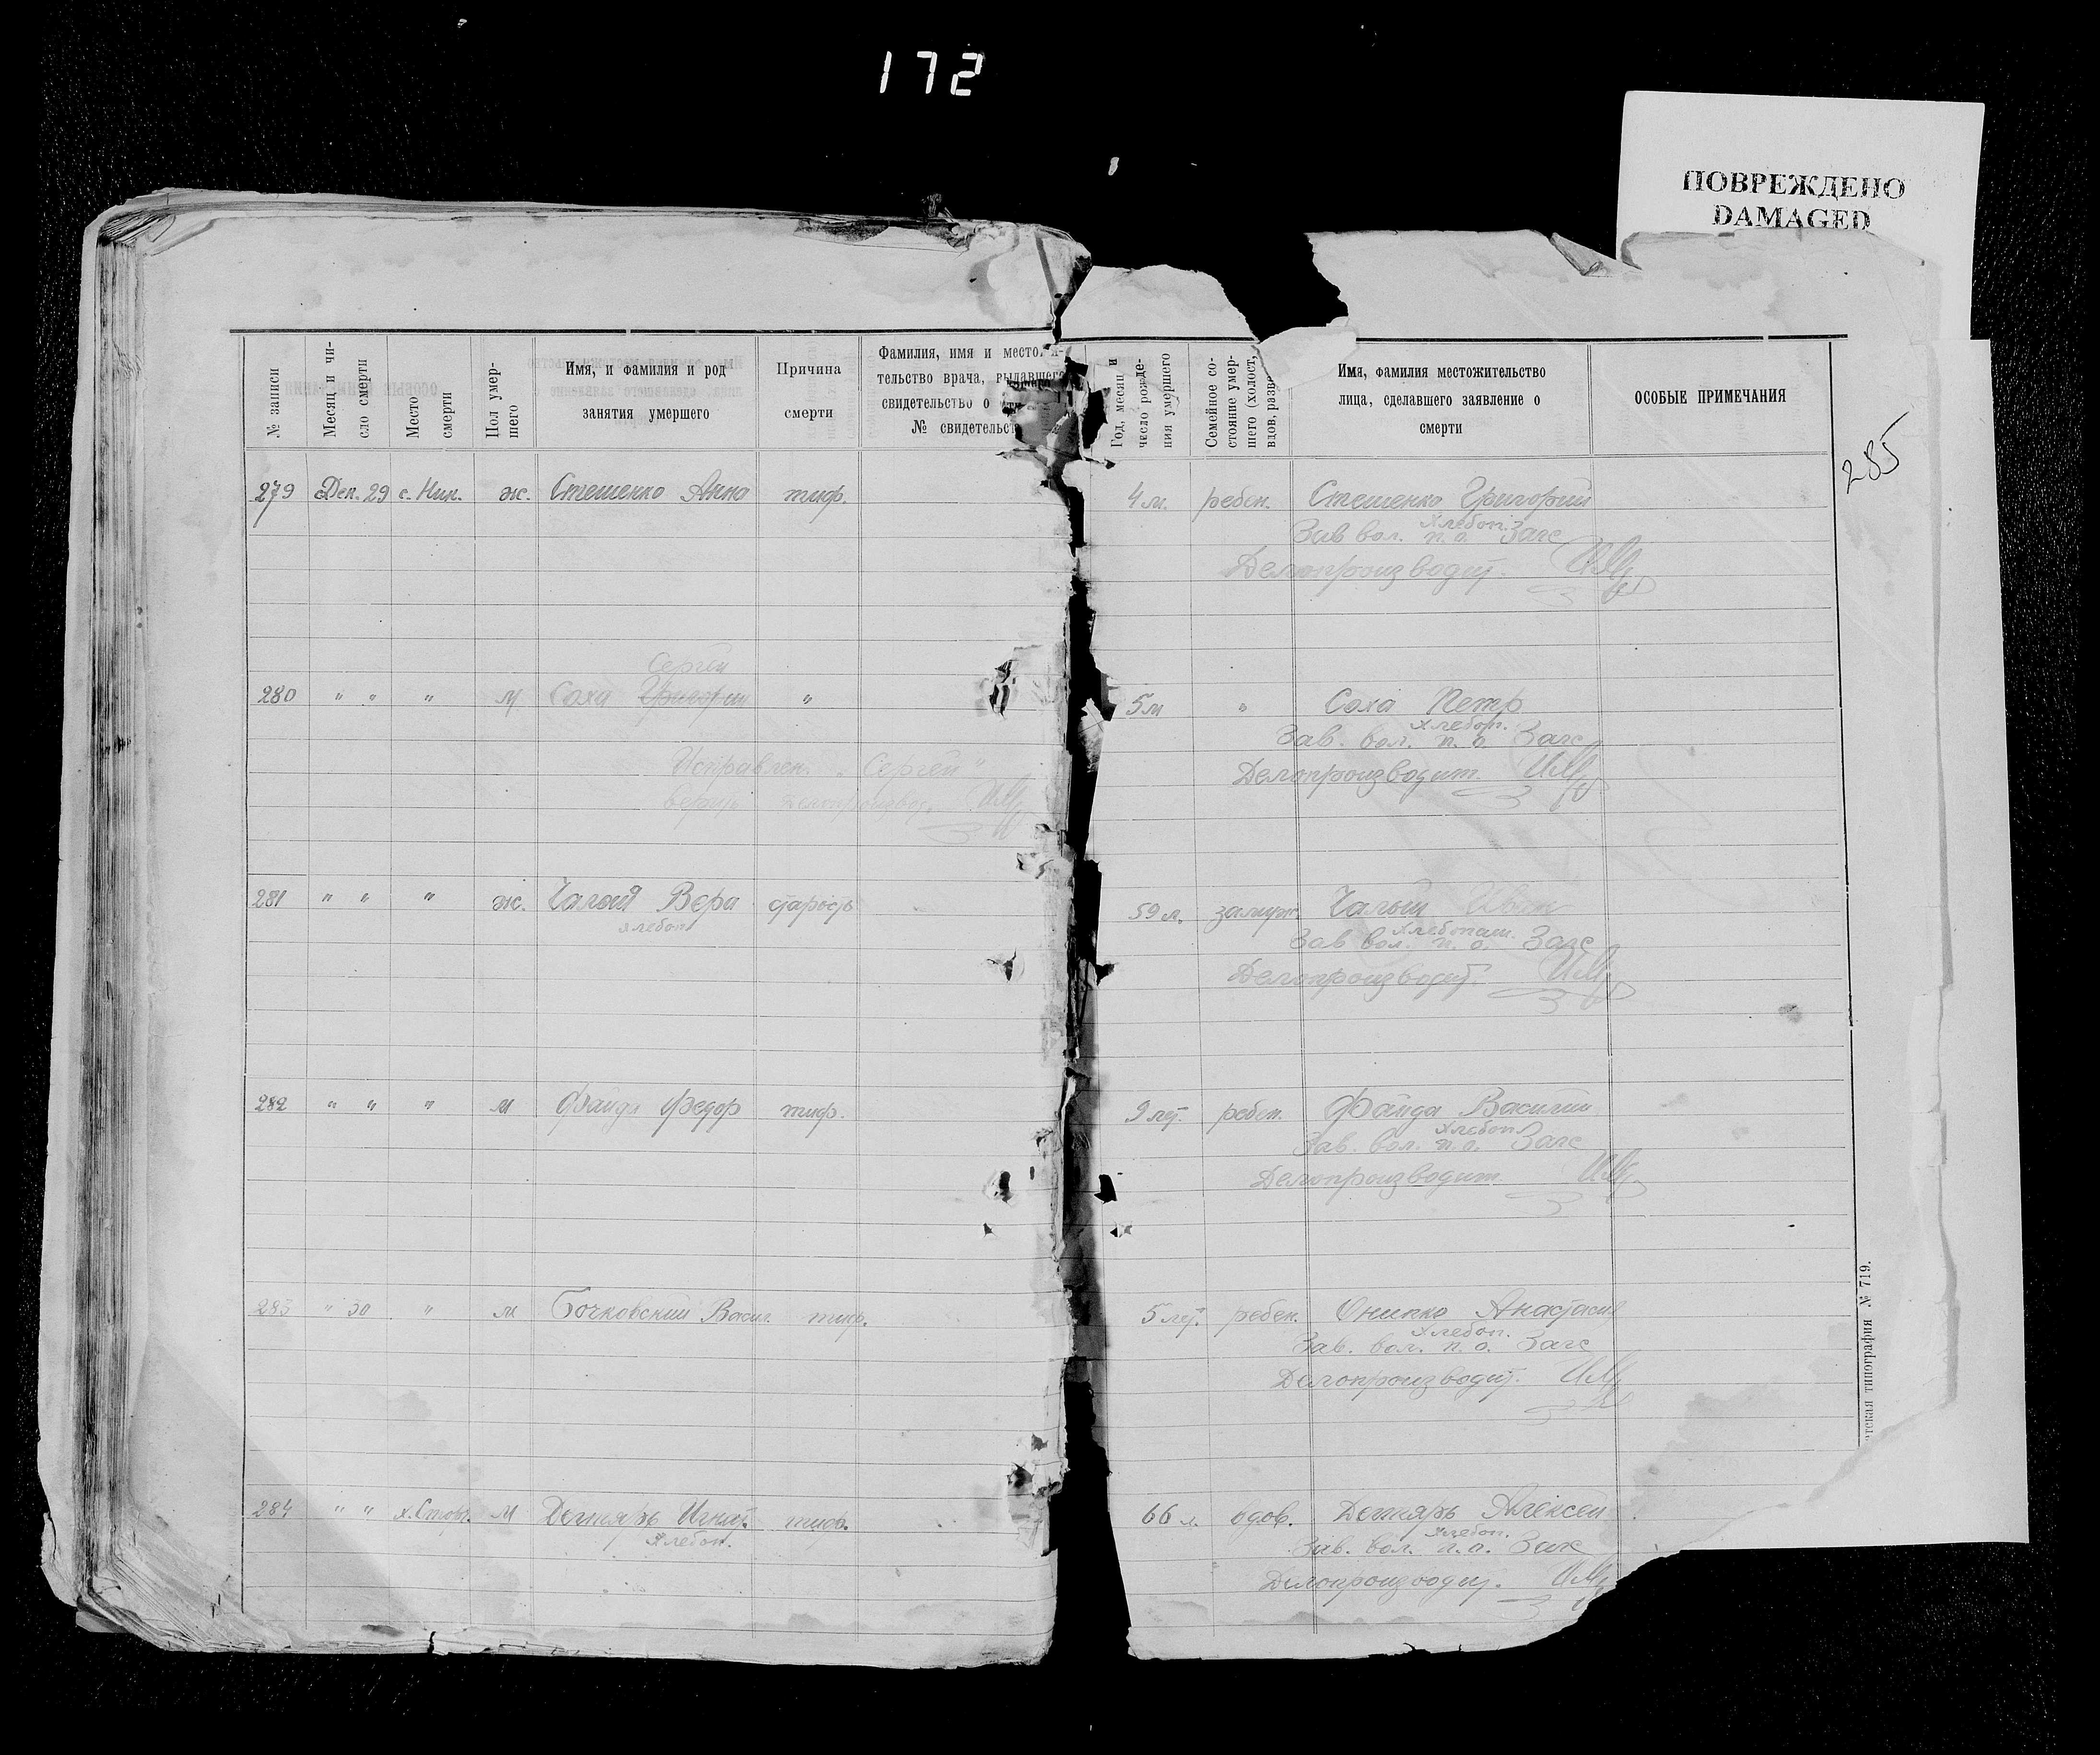 172
ПОВРЕЖДЕНО
DAMAGED
№ записи
Месяц и чи-
сло смерти
Место
смерти
Пол умер-
шего
Имя, и фамилия и род
занятия умершего
Причина
смерти
Фамилия, имя и
тельство врача, выдавшего
свидетельство о
№ свидетельст
Год, месяц и
число рожде-
ния умершего
Семейное со-
стояние умер-
шего (холост,
вдов, разве
Имя, фамилия местожительство
лица, сделавшего заявление о
смерти
ОСОБЫЕ ПРИМЕЧАНИЯ
285
279 Дек. 29 с. Ник. ж. Стешенко Анна тиф. 4 м. ребен. Стешенко Григорий
Хлебоп.
Зав. вол. п. о. Загс
Делопроизводит.
Сергей
280 " " " м Соха Григорий " 5 м " Соха Петр
Хлебоп.
Зав. вол. п. о. Загс
Исправлен. „Сергей"
Делопроизводит.
281 " " " ж. Чалая Вера старость 59 л. замуж. Чалый Иван
хлебоп. Хлебопаш.
Зав. вол. п. о. Загс
Делопроизводит.
282 " " " м Файда Федор тиф. 9 лет. ребен. Файда Василий
Хлебоп.
Зав. вол. п. о. Загс
Делопроизводит.
283 " 30 " м Бочковский Васил. тиф. 5 лет. ребен. Онипко Анастасия
Хлебоп.
Зав. вол. п. о. Загс
Делопроизводит.
284 " " х. м Дегтярь Игнат. тиф. 66 л. вдов. Дегтярь Алексей
Хлебоп. Хлебоп.
Зав. вол. п. о. Загс
Делопроизводит.
типография № 719.